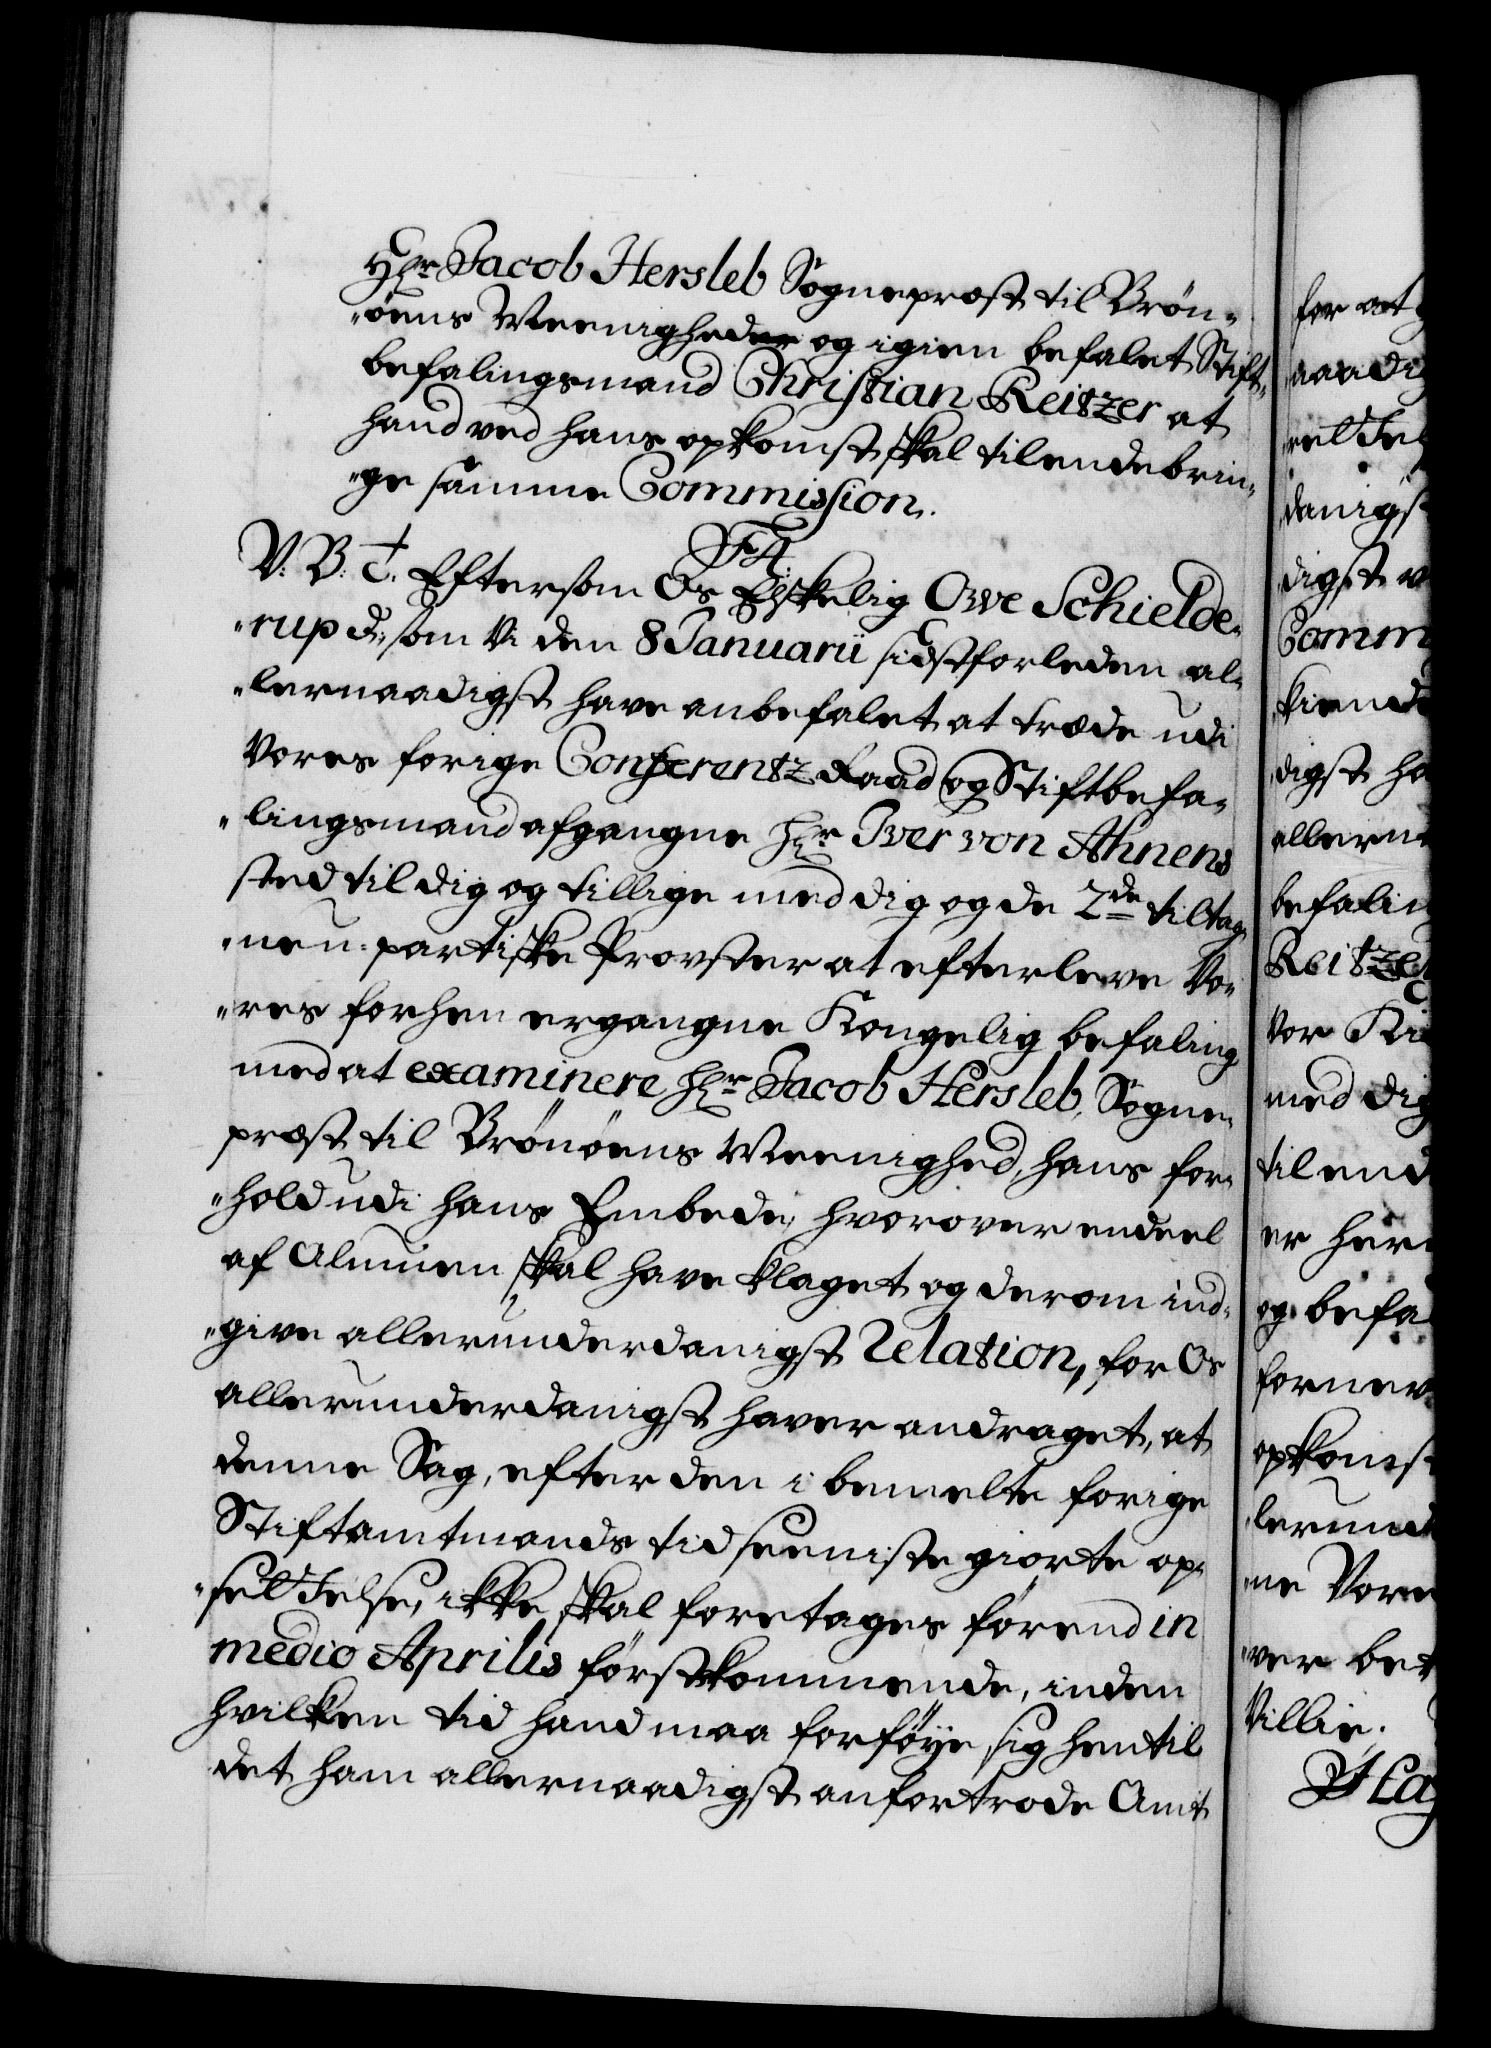 Hr Jacob Hersleb Sogneprest til Brön-
"öens Meenigheder og igien befalet Stift-
befalingsmand Christian Reitzer at
hand ved hans opkomst skal tilendebrin-
"ge samme Commission.
F4.
V: B: T. Eftersom Os Elskelig Owe Schielde-
"rup d: som Vi den 8 Januarii sidstforleden al-
"lernaadigst have anbefalet at træde udi
Vores forige Conferentz Raad og Stiftbefa-
"lingsmand afgangne Hr Iver von Ahnens
sted til dig og tillige med dig og de 2de tiltagne
"neu-partiske Provster at efterleve Vo-
"res forhen ergangne Kongelig befaling
med at examinere Hr Jacob Hersleb, Sogne-
prest til Brönöens Meenighed, hans for-
"hold udi hans Embede, hvorover endeel
af Almuen skal have klaget og derom ind-
"give allerunderdanigst Relation, for Os
allerunderdanigst haver andraget, at
denne Sag, efter den i bemelte forige
Stiftamtmands tid seeniste giorte op-
"settelse, ikke skal foretages förend in
medio Aprilis förstkommende, inden
hvilken tid hand maa forföye sig hen til
det ham allernaadigst anfortrode Amt
for at
"naadig
"rel
danigst
digst
Comm
kiende
digst ha
allerna
befaling
Reitzer
vor
med dig
til ende
er her
og befa
forne
opkomst
lerund
"ne Vore
"ver bet
Villie.